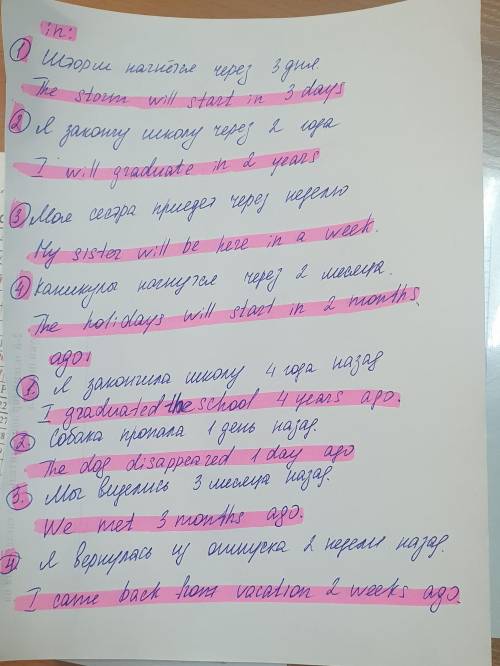 in:
① Шторм начнётся через 3 дня
The storm will start in 3 days
② Я закончу школу через 2 года
I will graduate in 2 years
③ Моя сестра приедет через неделю
My sister will be here in a week.
④ Каникулы начнутся через 2 месяца.
The holidays will start in 2 months.
ago:
1. Я закончила школу 4 года назад
I graduated the school 4 years ago.
2. Собака пропала 1 день назад.
The dog disappeared 1 day ago
3. Мы виделись 3 месяца назад.
We met 3 months ago.
4. Я вернулась из отпуска 2 недели назад.
I came back from vacation 2 weeks ago.